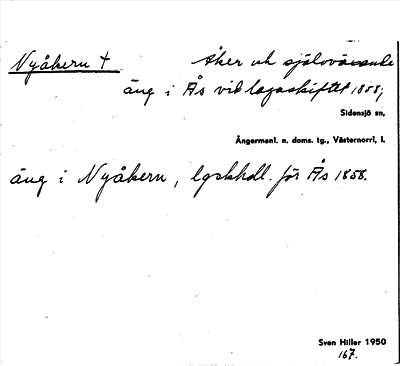 Nyåkern † Åker och självåvande
äng i Ås vid lagaskiftet 1858;
Sidensjö sn,
Ångermanl. n. doms. tg., Västernorrl. l.
äng i Nyåkern, lgskhdl. för Ås 1858.
Sven Hiller 1950
167.